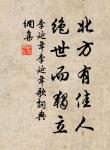 北方有佳人
絕世而獨立
李延年李延年歌詞典
網集